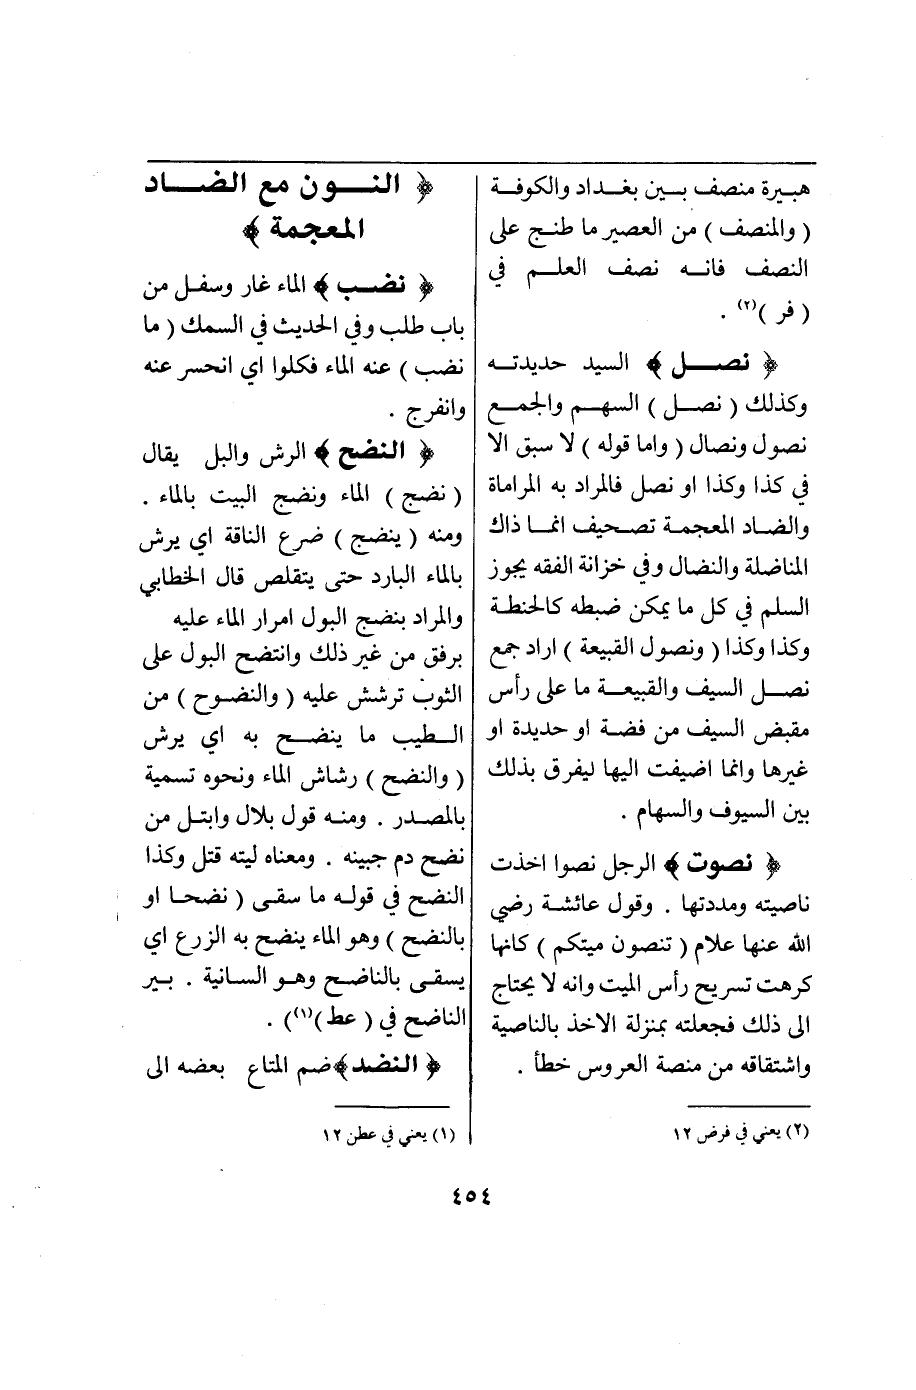 هبيرة منصف بين بغداد والكوفة
( والمنصف ) من العصير ما طنج على
النصف فانه نصف العلم في
( فر )(٢) .
﴿ نصل ﴾ السيد حديدته
وكذلك ( نصل ) السهم والجمع
نصول ونصال ( واما قوله ) لا سبق الا
في كذا وكذا او نصل فالمراد به المراماة
والضاد المعجمة تصحيف انما ذاك
المناضلة والنضال وفي خزانة الفقه يجوز
السلم في كل ما يمكن ضبطه كالحنطة
وكذا وكذا ( ونصول القبيعة ) اراد جمع
نصل السيف والقبيعة ما على رأس
مقبض السيف من فضة او حديدة او
غيرها وانما اضيفت اليها ليفرق بذلك
بين السيوف والسهام .
﴿ نصوت ﴾ الرجل نصوا اخذت
ناصيته ومددتها . وقول عائشة رضي
الله عنها علام ( تنصون ميتكم ) كانها
كرهت تسريح رأس الميت وانه لا يحتاج
الى ذلك فجعلته بمنزلة الاخذ بالناصية
واشتقاقه من منصة العروس خطأ .
(٢) يعني في فرض ١٢
﴿ النون مع الضاد
المعجمة ﴾
﴿ نضب ﴾ الماء غار وسفل من
باب طلب وفي الحديث في السمك ( ما
نضب ) عنه الماء فكلوا اي انحسر عنه
وانفرج .
﴿ النضح ﴾ الرش والبل يقال
( نضح ) الماء ونضح البيت بالماء .
ومنه ( ينضح ) ضرع الناقة اي يرش
بالماء البارد حتى يتقلص قال الخطابي
والمراد بنضح البول امرار الماء عليه
برفق من غير ذلك وانتضح البول على
الثوب ترشش عليه ( والنضوح ) من
الطيب ما ينضح به اي يرش
( والنضح ) رشاش الماء ونحوه تسمية
بالمصدر . ومنه قول بلال وابتل من
نضح دم جبينه . ومعناه ليته قتل وكذا
النضح في قوله ما سقى ( نضحا او
بالنضح ) وهو الماء ينضح به الزرع اي
يسقى بالناضح وهو السانية . بير
الناضح في ( عط )(١) .
﴿ النضد ﴾ ضم المتاع بعضه الى
(١) يعني في عطن ١٢
٤٥٤